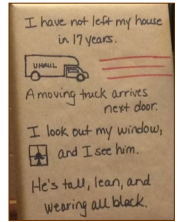 I have not left my house
in 17 years.
UHAUL
A moving truck arrives
next door.
I look out my window,
and I see him.
He's tall, lean, and
wearing all black.